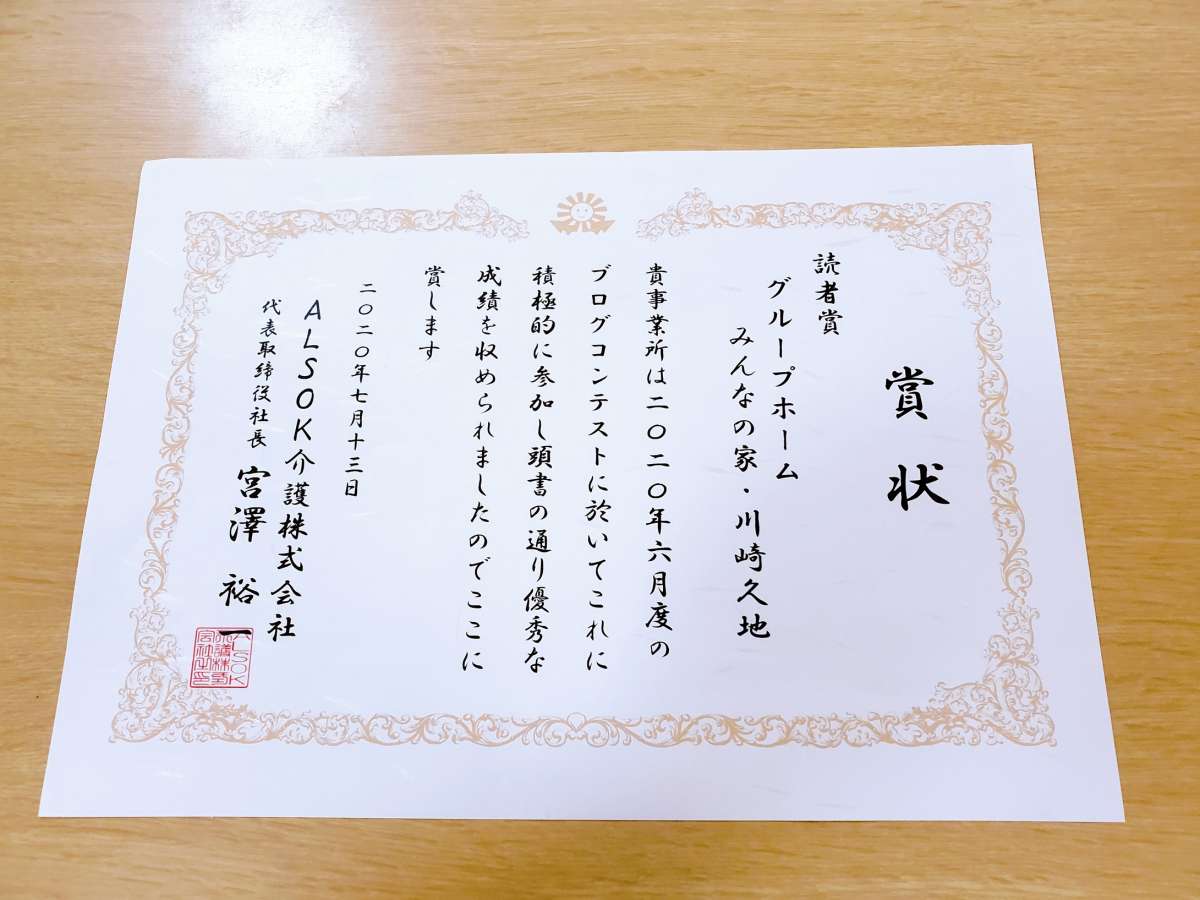 賞状
読者賞
グループホーム
みんなの家・川崎久地
貴事業所は二〇二〇年六月度の
ブログコンテストに於いてこれに
積極的に参加し頭書の通り優秀な
成績を収められましたのでここに
賞します
二〇二〇年七月十三日
ALSOK介護株式会社
代表取締役社長 宮澤裕一
ALSOK介護株式会社之印